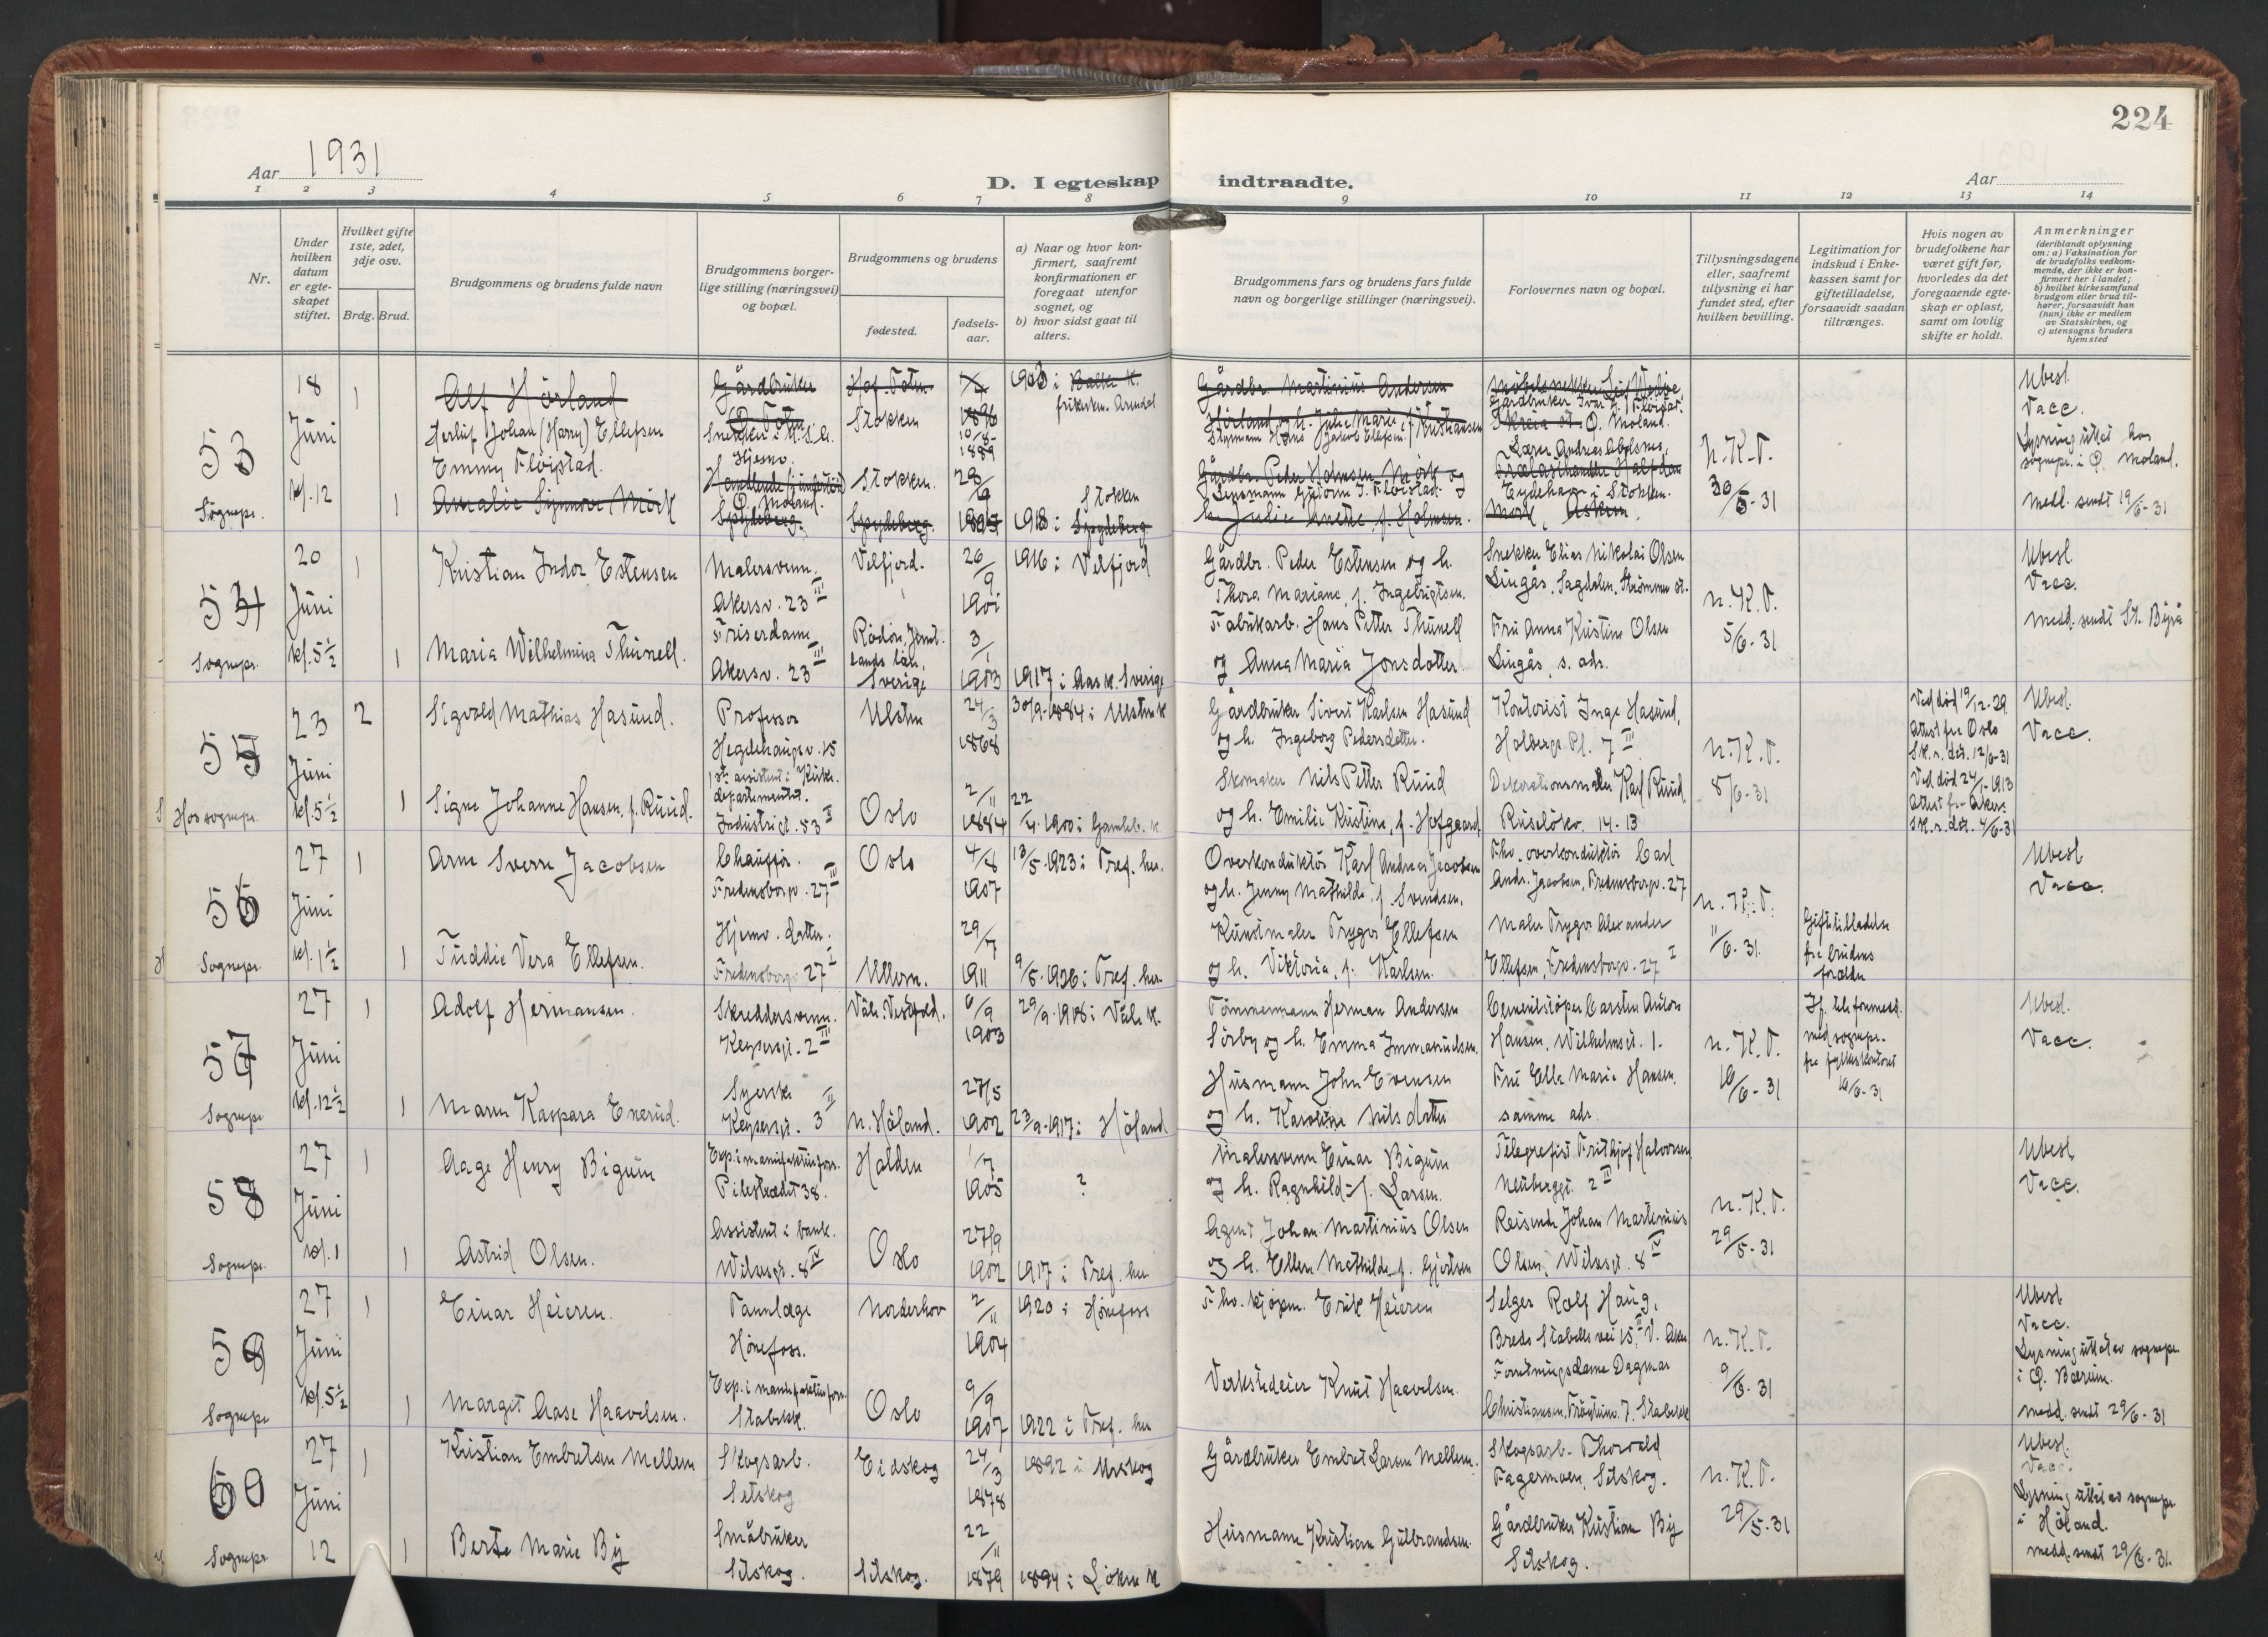 224
Aar 1931
D. I egteskap indtraadte.
Aar
1 2 3 4 5 6 7 8 9 10 11 12 13 14
Nr.
Under hvilken datum er egteskapet stiftet.
Hvilket gifte 1ste, 2det, 3dje osv.
Brdg. Brud.
Brudgommens og brudens fulde navn
Brudgommens borgerlige stilling (næringsvei) og bopæl.
Brudgommens og brudens
fødested.
fødselsaar.
a) Naar og hvor konfirmert, saafremt konfirmationen er foregaat utenfor sognet, og
b) hvor sidst gaat til alters.
Brudgommens fars og brudens fars fulde navn og borgerlige stillinger (næringsvei).
Forlovernes navn og bopæl.
Tillysningsdagene eller, saafremt tillysning ei har fundet sted, efter hvilken bevilling.
Legitimation for indskud i Enkekassen samt for giftetilladelse, forsaavidt saadan tiltrænges.
Hvis nogen av brudefolkene har været gift før, hvorledes da det foregaaende egteskap er opløst, samt om lovlig skifte er holdt.
Anmerkninger
(deriblandt oplysning om: a) Vaksination for de brudefolks vedkommende, der ikke er konfirmert her i landet; b) hvilket kirkesamfund brudgom eller brud tilhører, forsaavidt han (hun) ikke er medlem av Statskirken, og c) utensogns bruders hjemsted
53
18 Juni kl. 12
Sognepr.
1
Alf Hørland
Herluf Johan (Harry) Ellefsen
Emmy Fløistad.
1
Amalie Synnøve Mörk
Gårdbruker
Ø. Toten
Hjemv.
Ø. Moland.
Spydeberg.
Hof. Toten
Stokken
Stokken.
Spydeberg.
1896
10/8-1889
29/6
1903 i Balke k.
frikirken. Arendal
Stokken
1918 i Spydeberg
Gårdbr. Martinius Andersen
Hørland og h. Julie Marie f. Kristiansen
Styrmann Hans Jakob Ellefsen
Gårdbr. Peder Holmsen Mörk og
Lensmann Guttorm T. Fløistad.
h. Julie Anette, f. Holmsen.
Gårdbruker Ivar T. Fløistad.
Ø. Moland.
Lærer Andreas Abelsnes,
Trælasthandler Halfdan
Eydehavn i Stokken.
Mörk, Askim.
N.K.T.
30/5-31
Ubesl.
Vacc.
Lysning uttat hos
sognepr. i Ø. Moland.
Medd. sendt 19/6-31
54
20 Juni kl. 5½
Sognepr.
1
Kristian Indor Estensen
Malersvenn.
Akersv. 23 III
Velfjord.
26/9 1901
1916 i Velfjord
Gårdbr. Peder Estensen og h.
Thora Mariane, f. Ingebrigtsen.
Snekker Elias Nikolai Olsen
Lingås, Sagdalen, Strømmen st.
N.K.T.
5/6-31
Ubesl.
Vacc.
Medd. sendt St. Byrå
1
Maria Wilhelmina Thunell.
Friserdame
Akersv. 23 III
Rödön, Jämtlands län, Sverige
3/1 1903
1917 i Aas k. Sverige
Fabrikarb. Hans Petter Thunell
og Anna Maria Jonsdotter.
Fru Anna Kristine Olsen
Lingås, s. adr.
55
23 Juni kl. 5½
Hos sognepr.
2
Sigvald Mathias Hasund.
Professor
Hegdehaugsv. 15
Ulstein
24/3 1868
30/9-1884 i Ulstein k
Gårdbruker Sivert Karlsen Hasund
og h. Ingeborg Pedersdatter.
Kontorist Inge Hasund,
Holbergs Pl. 7 III
N.K.T.
8/6-31
Ved død 19/12-29
Attest fra Oslo
Sk.r. dat. 12/6-31
Ubesl.
Vacc.
1
Signe Johanne Hansen, f. Ruud.
1ste assistent i Kirkedepartementet.
Industrigt. 53 I
Oslo
2/11 1884
22/4-1900 i Gamleb. k
Skomaker Nils Petter Ruud
og h. Emilie Kristine, f. Hofgaard
Dekorationsmaler Karl Ruud
Ruseløkv. 14-13
Ved død 24/1-1913
Attest fra Akers
Sk.r. dat. 4/6-31
56
27 Juni kl. 1½
Sognepr.
1
Arne Sverre Jacobsen
Chauffør.
Fredensborgv. 27 III
Oslo
4/8 1907
13/5-1923 i Tref. her.
Overkonduktør Karl Andreas Jacobsen
og h. Jenny Mathilde, f. Svendsen.
Fhv. overkonduktör Carl
Andr. Jacobsen, Fredensborgv. 27
N.K.T.
11/6-31.
Ubesl
Vacc.
1
Tuddie Vera Ellefsen.
Hjemv. datter.
Fredensborgv. 27 I
Ullern.
29/7 1911
9/5-1926 i Tref. her
Kunstmaler Trygve Ellefsen
og h. Viktoria, f. Karlsen.
Maler Trygve Alexander
Ellefsen, Fredensborgv. 27 I
Giftetilladelse
fra brudens
forældre
57
27 Juni kl. 12½
Sognepr
1
Adolf Hermansen.
Skreddersvenn.
Keysersgt. 2 III
Våle. Vestfold.
6/9 1903
29/9-1918 i Våle k.
Tømmermann Herman Andersen
Sørby og h. Emma Immanuelsen.
Cementstøper Carsten Anton
Hansen, Wilhelmsgt. 1.
N.K.T.
16/6-31
Jf. telefonmedd.
med sognepr.
fra fylkeskontoret
16/6-31
Ubesl.
Vacc.
1
Maren Kaspara Enerud.
Syerske
Keysersgt. 3 II
N. Høland.
27/5 1902
23/9-1917 i Høland
Husmann John Evensen
og h. Karoline Nilsdatter
Fru Ella Marie Hansen.
samme adr.
58
27 Juni kl. 1
Sognepr.
1
Aage Henry Bigum
Exp. i manufakturforr.
Pilestrædet 38.
Halden
1/7 1905
?
Malersvenn Einar Bigum
og h. Ragnhild f. Larsen.
Telegrafist Frithjof Halvorsen
Neuberggt. 2 II
N.K.T.
29/5-31
Ubesl
Vacc.
1
Astrid Olsen.
Assistent i bank.
Wilsesgt. 8 IV
Oslo
27/9 1902
1917 i Tref. her
Agent Johan Martinius Olsen
og h. Ellen Mathilde f. Gjertsen
Reisende Johan Martinius
Olsen, Wilsesgt. 8 IV
59
27 Juni kl. 5½
Sognepr
1
Einar Heieren.
Tannlæge
Hønefoss.
Norderhov
2/11 1904
1920 i Hønefoss
Fhv. kjøpm. Erik Heieren
Selger Rolf Haug,
Breda Stabells vei 15 V. Aker
N.K.T.
9/6-31
Ubesl
Vacc.
Lysning uttat av sognepr
i Ø. Bærum.
Medd. sendt 29/6-31
1
Margit Aase Haavelsen.
Exp. i manufakturforr.
Stabekk.
Oslo
9/9 1907
1922 i Tref. her
Verkstedeier Knut Haavelsen.
Forretningsdame Dagmar
Christiansen, 7. Stabekk
60
27 Juni 12
Sognepr
1
Kristian Embretsen Mellem
Skogsarb.
Setskog
Eidskog
24/3 1878
1892 i Urskog
Gårdbruker Embret Larsen Mellem.
Skogsarb. Thorvald
Fagermoen, Setskog.
N.K.T.
29/5-31
Ubesl.
Vacc.
Lysning uttat av sognepr
i Høland.
Medd. sendt 29/6-31.
1
Berte Marie By
Småbruker
Setskog.
Setskog.
22/11 1879
1894 i Løken k
Husmann Kristian Gulbrandsen
Gårdbruker Kristian By
Setskog.